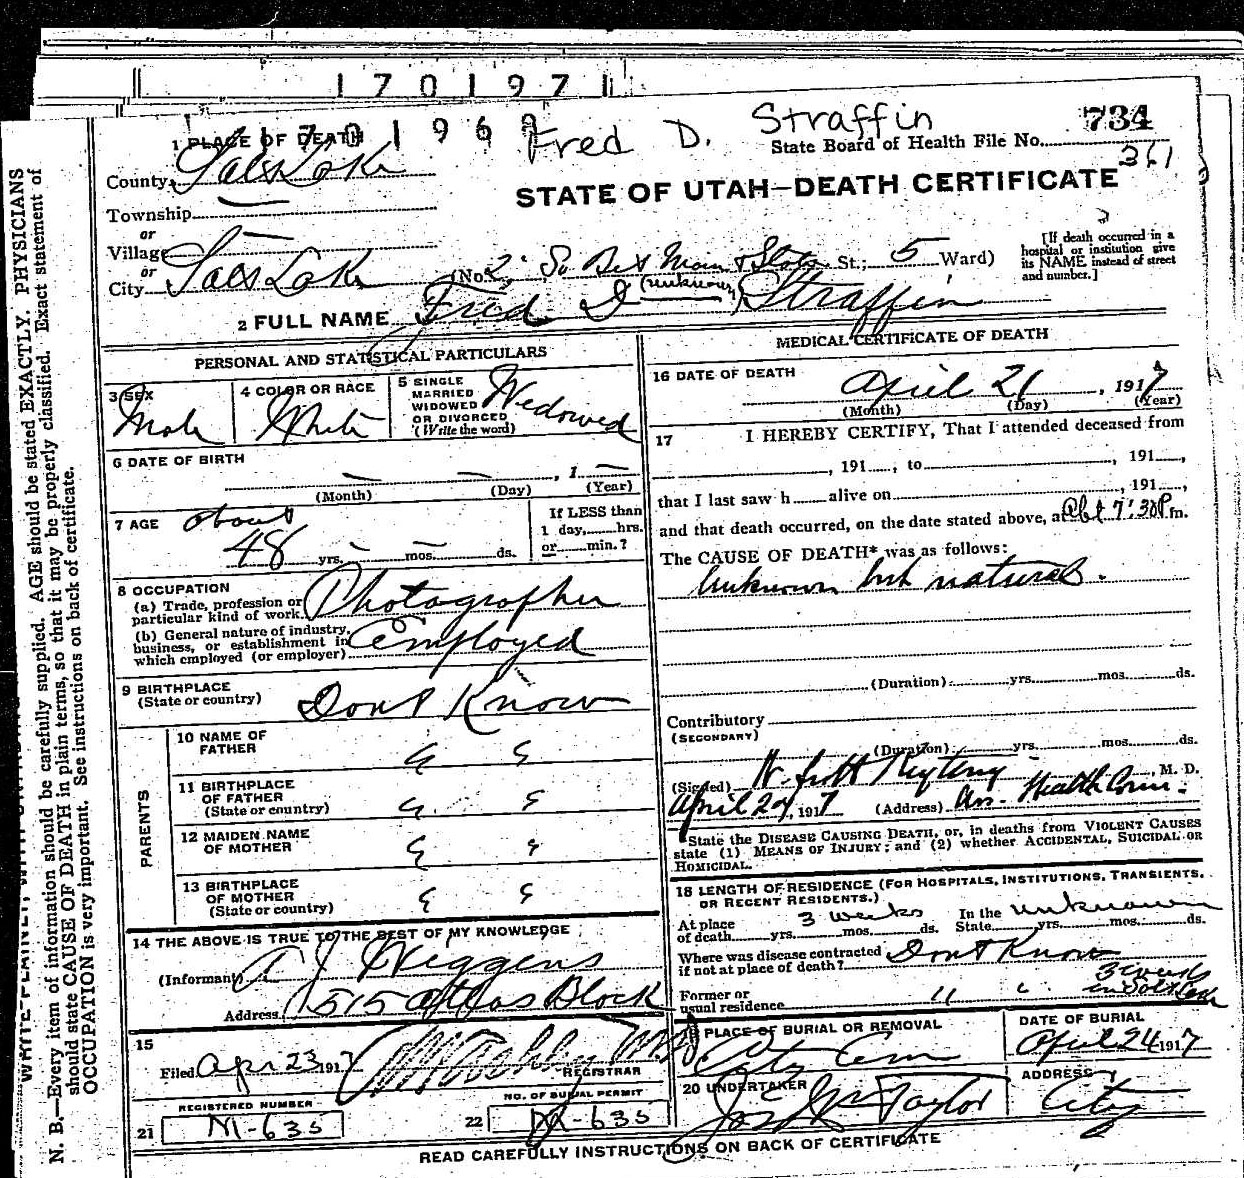 1701971
1701969
Fred D. Straffin
734
State Board of Health File No.
361
STATE OF UTAH—DEATH CERTIFICATE
1 PLACE OF DEATH
County Salt Lake
Township
or
Village
or
City Salt Lake
(No. 2 So Bet Main & State St.; 5 Ward)
[If death occurred in a
hospital or institution give
its NAME instead of street
and number.]
2 FULL NAME Fred D (unknown) Straffin
PERSONAL AND STATISTICAL PARTICULARS
3 SEX
Male
4 COLOR OR RACE
White
5 SINGLE
MARRIED
WIDOWED
OR DIVORCED
(Write the word)
Widowed
6 DATE OF BIRTH
, 1
(Month) (Day) (Year)
7 AGE about
48 yrs. mos. ds.
If LESS than
1 day, hrs.
or min.?
8 OCCUPATION
(a) Trade, profession or
particular kind of work Photographer
(b) General nature of industry,
business, or establishment in
which employed (or employer) Employed
9 BIRTHPLACE
(State or country) Dont Know
PARENTS
10 NAME OF
FATHER " "
11 BIRTHPLACE
OF FATHER
(State or country) " "
12 MAIDEN NAME
OF MOTHER " "
13 BIRTHPLACE
OF MOTHER
(State or country) " "
14 THE ABOVE IS TRUE TO THE BEST OF MY KNOWLEDGE
(Informant) J Higgens
Address 515 Atlas Block
15
Filed Apr 23 1917
REGISTRAR
REGISTERED NUMBER
21 M-635
NO. OF BURIAL PERMIT
22 M-635
MEDICAL CERTIFICATE OF DEATH
16 DATE OF DEATH
April 21, 1917
(Month) (Day) (Year)
17 I HEREBY CERTIFY, That I attended deceased from
, 191 , to , 191 ,
that I last saw h alive on , 191 ,
and that death occurred, on the date stated above, at Abt 7:30 P m.
The CAUSE OF DEATH* was as follows:
Unknown but natural.
(Duration) yrs. mos. ds.
Contributory
(SECONDARY)
(Duration) yrs. mos. ds.
(Signed) , M. D.
April 24, 1917 (Address) Health Com.
*State the DISEASE CAUSING DEATH, or, in deaths from VIOLENT CAUSES
state (1) MEANS OF INJURY; and (2) whether ACCIDENTAL, SUICIDAL OR
HOMICIDAL.
18 LENGTH OF RESIDENCE (FOR HOSPITALS, INSTITUTIONS, TRANSIENTS,
OR RECENT RESIDENTS.)
At place
of death yrs. 3 weeks mos. ds.
In the
State unknown yrs. mos. ds.
Where was disease contracted
if not at place of death? Dont Know
Former or
usual residence " " 3 weeks
in Salt Lake
19 PLACE OF BURIAL OR REMOVAL
City Cem
DATE OF BURIAL
April 24 1917
20 UNDERTAKER
Jos Wm Taylor
ADDRESS
City
READ CAREFULLY INSTRUCTIONS ON BACK OF CERTIFICATE
N. B.—Every item of information should be carefully supplied. AGE should be stated EXACTLY. PHYSICIANS
should state CAUSE OF DEATH in plain terms, so that it may be properly classified. Exact statement of
OCCUPATION is very important. See instructions on back of certificate.